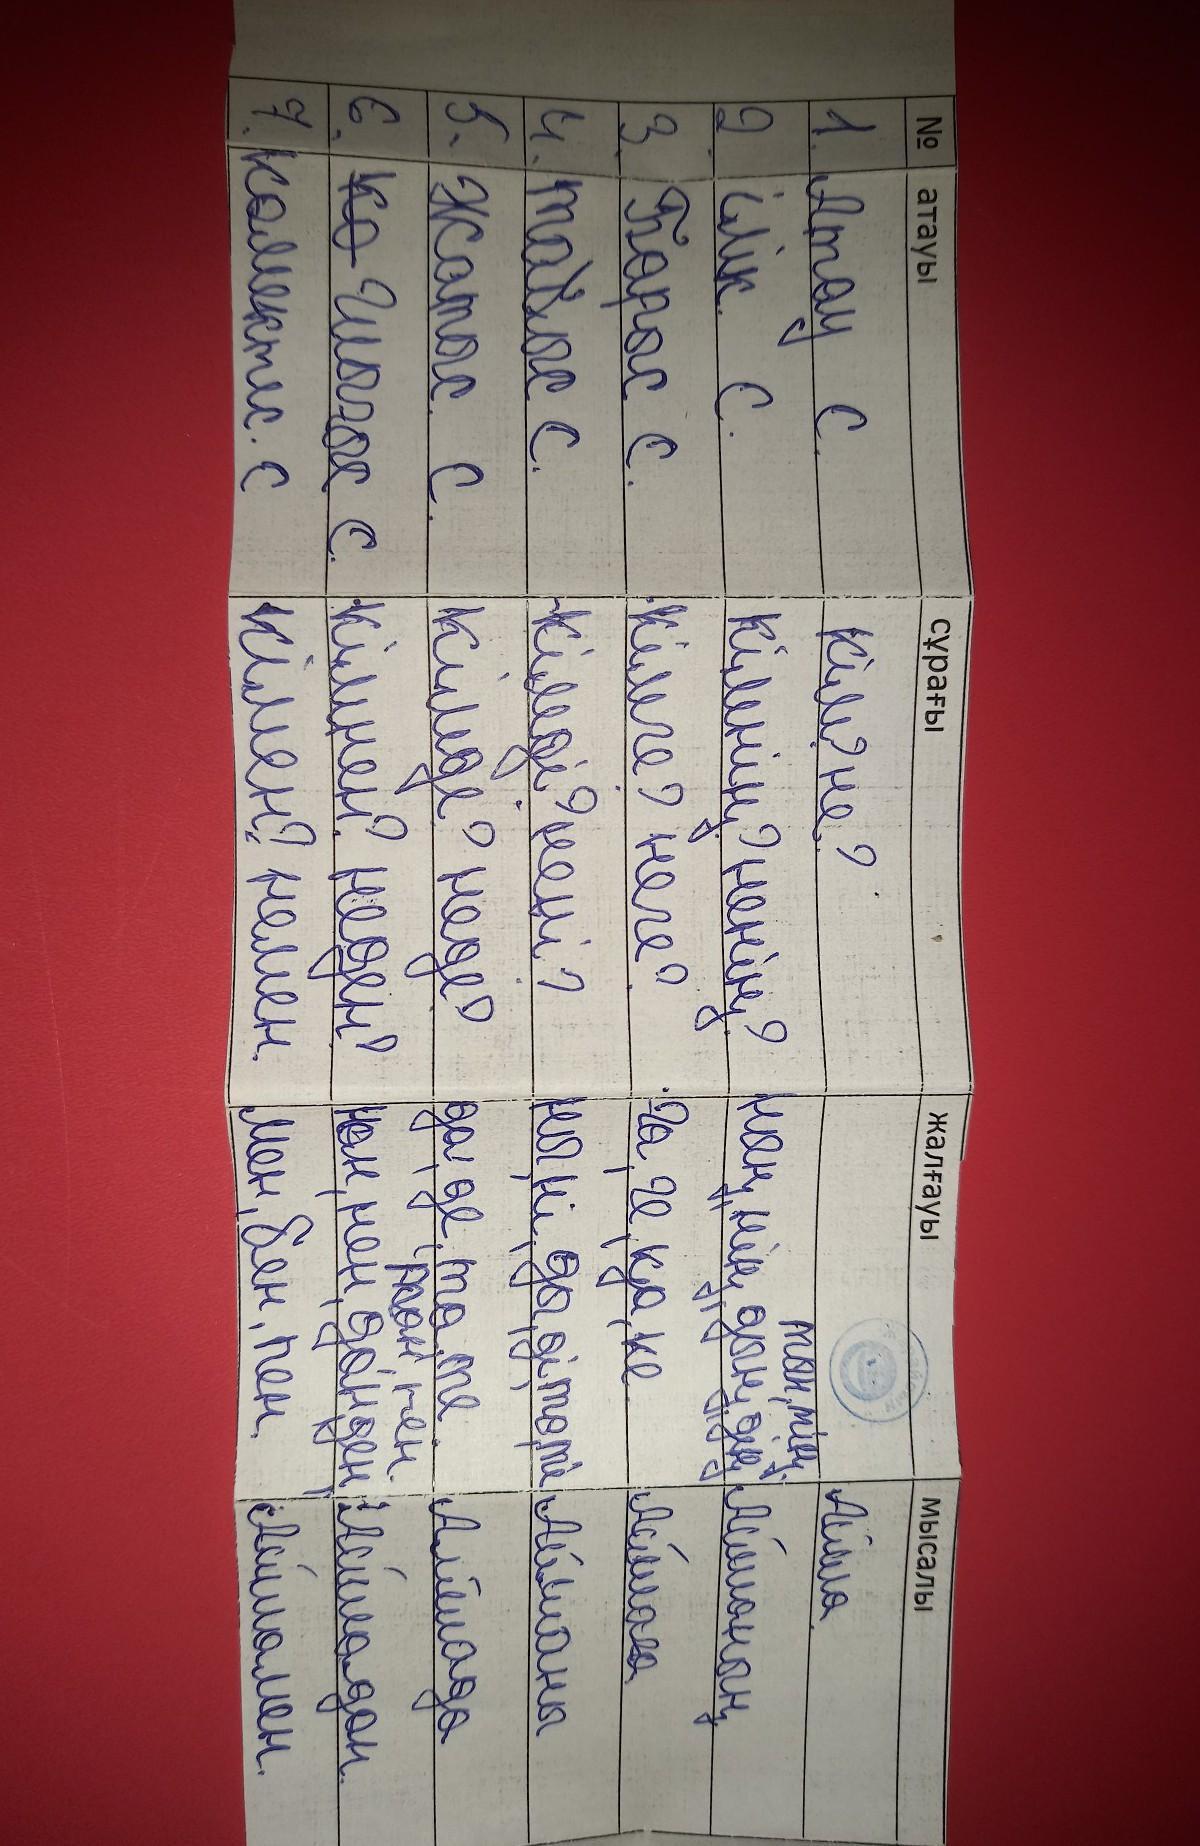 № атауы сұрағы жалғауы мысалы
1. Атау С. Кім? не? Айша
2 ілік. С. Кімнің? ненің? ның, нің, дың, дің тың, тің. Айшаның
3. Барыс С. Кімге? неге? Ға, ге, қа, ке. Айшаға
4. табыс С. Кімді? нені? ны, ні, ды, ді, ты, ті Айшаны
5. Жатыс. С. Кімде? неде? да, де, та, те. Айшада
6. Шығыс С. Кімнен? неден? нан, нен, дан, ден, тан, тен. Айшадан.
7. Көмектес. С Кіммен? немен. Мен, бен, пен. Айшамен.